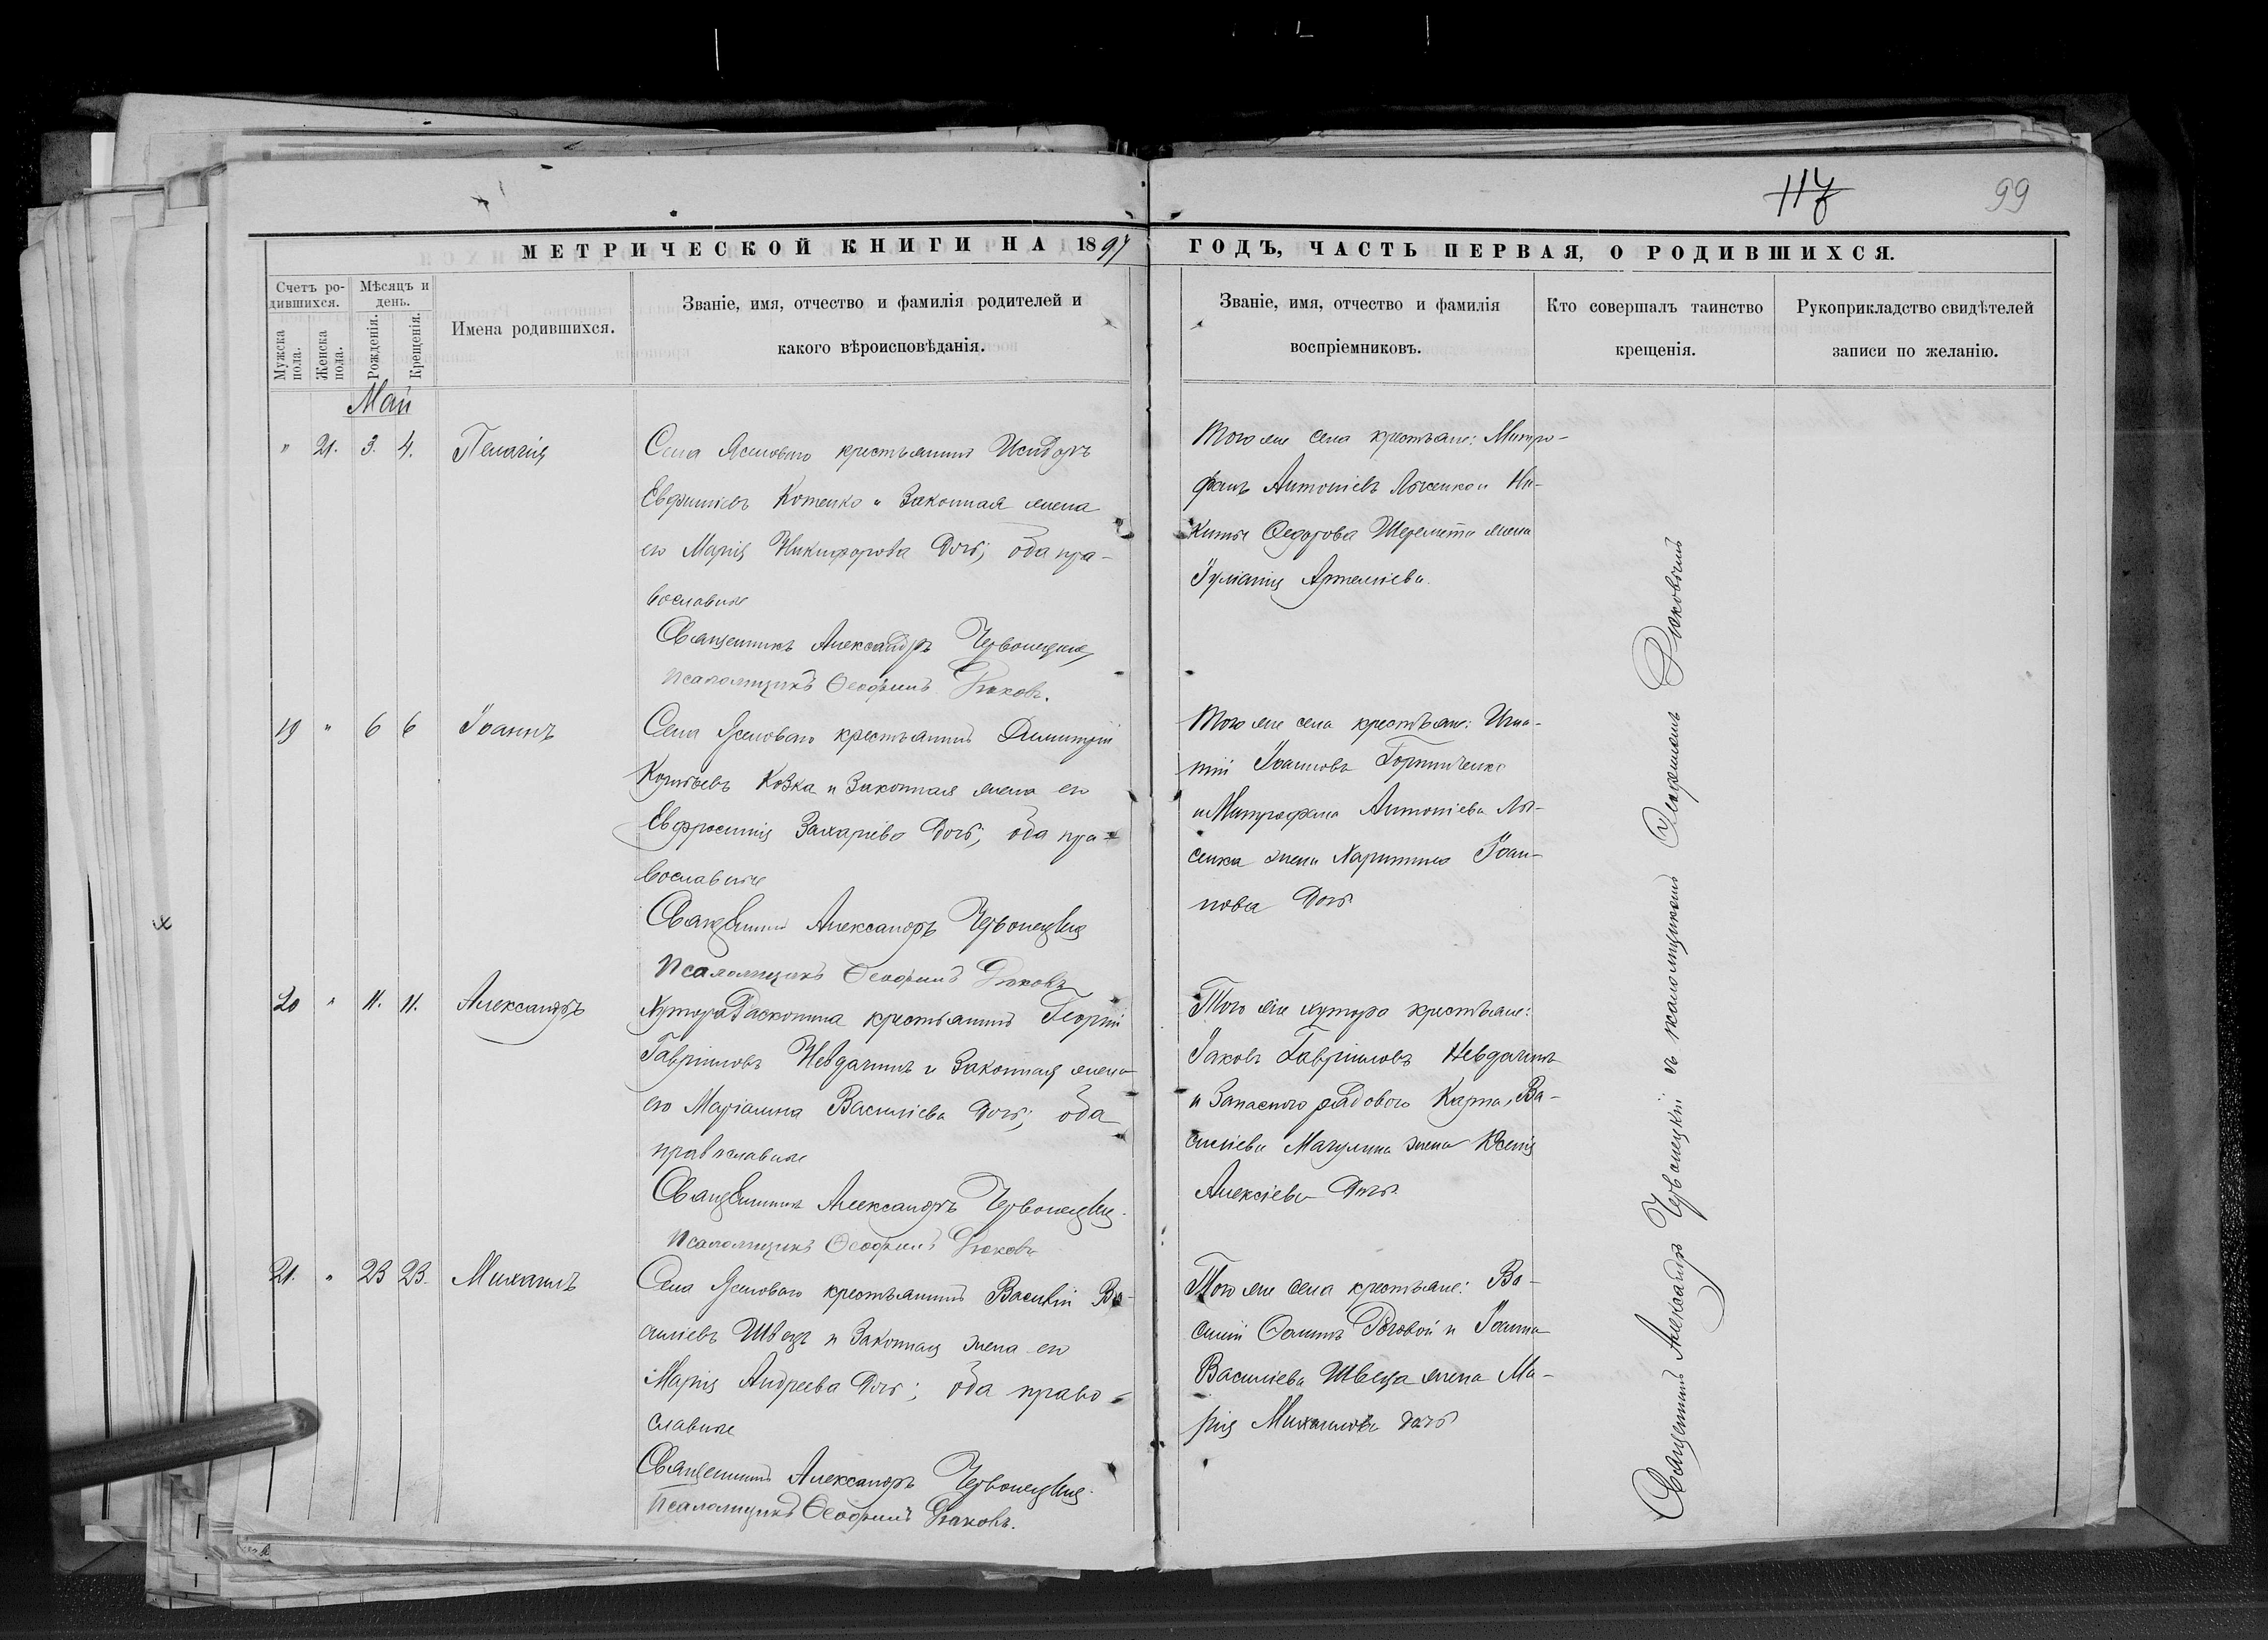 117 99
МЕТРИЧЕСКОЙ КНИГИ НА 1897 ГОДЪ, ЧАСТЬ ПЕРВАЯ, О РОДИВШИХСЯ.
Счетъ ро-
дившихся.
Мужска
пола.
Женска
пола.
Мѣсяцъ и
день.
Рожденія.
Крещенія.
Имена родившихся.
Званіе, имя, отчество и фамилія родителей и
какого вѣроисповѣданія.
Званіе, имя, отчество и фамилія
воспріемниковъ.
Кто совершалъ таинство
крещенія.
Рукоприкладство свидѣтелей
записи по желанію.
Май
" 21. 3. 4. Пелагія
Села Ясеноваго крестьянинъ Исидоръ
Евфиміевъ Котенко и законная жена
его Марія Никифорова дочь; оба пра-
вославные
Священникъ Александръ Червонецкій
псаломщикъ Ѳеофилъ
Того же села крестьяне: Митро-
фанъ Антоніевъ Лысенко и Ни-
киты Ѳедорова Шеремета жена
Іуліанія Артеміева.
19 " 6 6 Іоаннъ
Села Ясеноваго крестьянинъ Димитрій
Козка и законная жена его
Евфросинія Захаріева дочь; оба пра-
вославные
Священникъ Александръ Червонецкій
Псаломщикъ Ѳеофилъ
Того же села крестьяне: Игна-
тій Іоанновъ
и Митрофана Антоніева Лы-
сенка жена Харитина Іоан-
нова дочь
20 " 11. 11. Александръ
Хутора крестьянинъ Георгій
Гавріиловъ Невдачинъ и законная жена
его Маріанна Василіева дочь; оба
православные
Священникъ Александръ Червонецкій
Псаломщикъ Ѳеофилъ
Того же хутора крестьяне:
Іаковъ Гавріиловъ Невдачинъ
и запаснаго рядового Карпа Ва-
силіева жена Ксенія
Алексіева дочь
21. " 23 23. Михаилъ
Села Ясеноваго крестьянинъ Василій Ва-
силіевъ Швецъ и законная жена его
Марія Андреева дочь; оба право-
славные
Священникъ Александръ Червонецкій
Псаломщикъ Ѳеофилъ
Того же села крестьяне: Ва-
силій Ѳоминъ и Іоанна
Василіева Швеца жена Ма-
рія Михаилова дочь
Священникъ Александръ Червонецкій съ псаломщикомъ